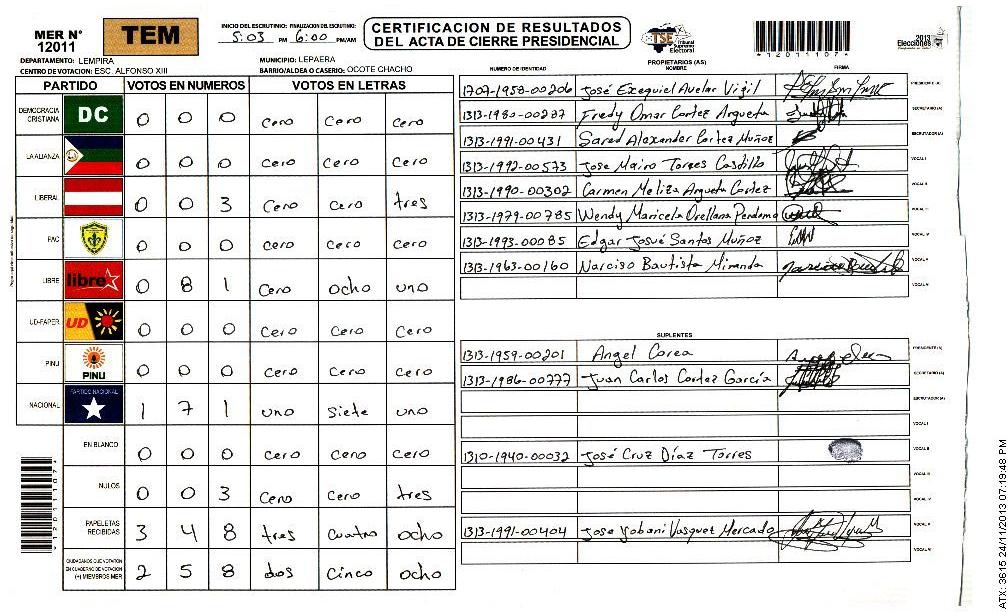 MER N° 12011
TEM
INICIO DEL ESCRUTINIO: 5:03 PM FINALIZACION DEL ESCRUTINIO: 6:00 PM/AM
CERTIFICACION DE RESULTADOS
DEL ACTA DE CIERRE PRESIDENCIAL
TSE Tribunal Supremo Electoral
*12011107*
2013 Elecciones
DEPARTAMENTO: LEMPIRA
MUNICIPIO: LEPAERA
CENTRO DE VOTACION: ESC. ALFONSO XIII
BARRIO/ALDEA O CASERIO: OCOTE CHACHO
PARTIDO VOTOS EN NUMEROS VOTOS EN LETRAS
DEMOCRACIA CRISTIANA DC 0 0 0 cero cero cero
LA ALIANZA 0 0 0 cero cero cero
LIBERAL 0 0 3 cero cero tres
PAC 0 0 0 cero cero cero
LIBRE libre 0 8 1 cero ocho uno
UD-FAPER UD 0 0 0 cero cero cero
PINU PINU 0 0 0 cero cero cero
NACIONAL PARTIDO NACIONAL 1 7 1 uno siete uno
EN BLANCO 0 0 0 cero cero cero
NULOS 0 0 3 cero cero tres
PAPELETAS RECIBIDAS 3 4 8 tres cuatro ocho
CIUDADANOS QUE VOTARON EN CUADERNO DE VOTACION (+) MIEMBROS MER 2 5 8 dos cinco ocho
*12011107*
PROPIETARIOS (AS)
NUMERO DE IDENTIDAD NOMBRE FIRMA
1707-1958-00206 José Exequiel Avelar Vigil PRESIDENTE (A)
1313-1980-00287 Fredy Omar Cortez Argueta SECRETARIO (A)
1313-1991-00431 Sared Alexander Cortez Muñoz ESCRUTADOR (A)
1313-1992-00573 Jose Mairo Torres Castillo VOCAL I
1313-1990-00302 Carmen Meliza Argueta Cortez VOCAL II
1313-1979-00785 Wendy Maricela Orellana Perdomo VOCAL III
1313-1993-00085 Edgar Josué Santos Muñoz VOCAL IV
1313-1963-00160 Narciso Bautista Miranda VOCAL V
VOCAL VI
SUPLENTES
1313-1959-00201 Angel Corea PRESIDENTE (A)
1313-1986-00777 Juan Carlos Cortez García SECRETARIO (A)
ESCRUTADOR (A)
VOCAL I
1310-1940-00032 José Cruz Díaz Torres VOCAL II
VOCAL III
VOCAL IV
1313-1991-00404 Jose Yobani Vasquez Mercado VOCAL V
VOCAL VI
ATX: 3615 24/11/2013 07:19:48 PM